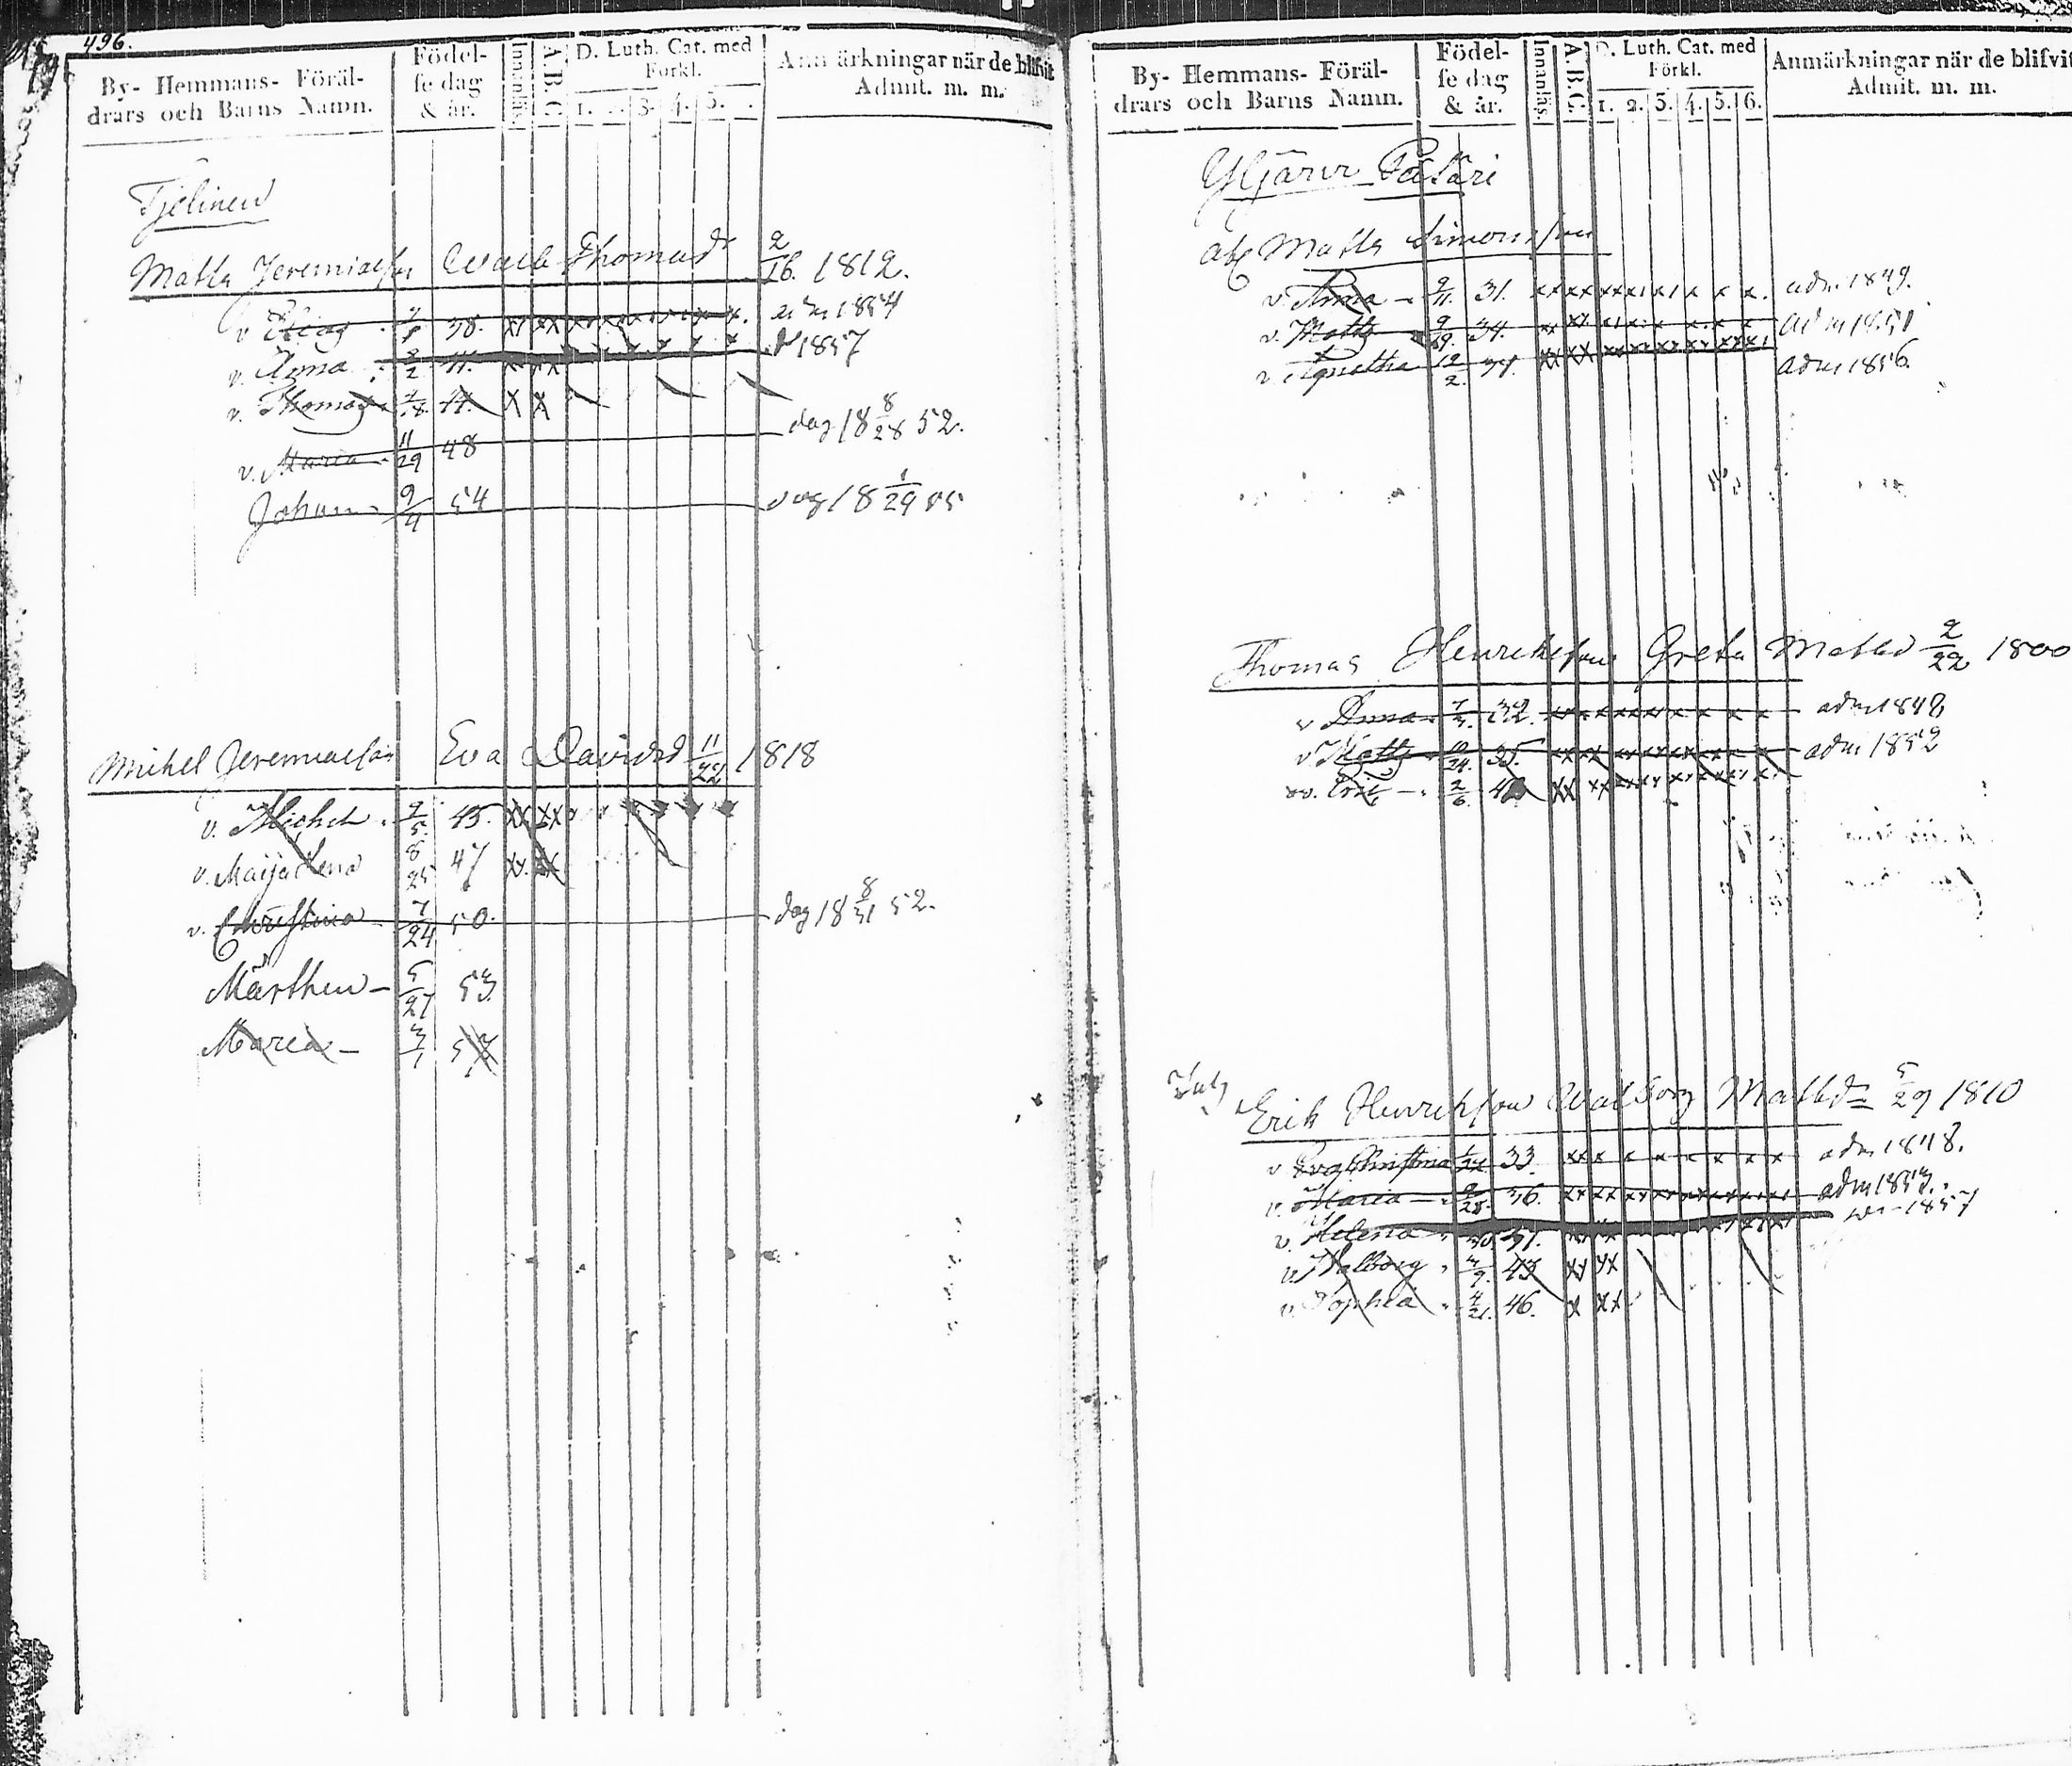 496.
By- Hemmans- Föräl-
drars och Barns Namn.
Födel-
se dag
& år.
Innanläs.
A.B.C.
D. Luth. Cat. med
Förkl.
1. 3. 4. 5.
Anmärkningar när de blifvit
Admit. m. m.
Tjelinen
Matts Jeremiasson Walb Thomasdr 2/16. 1812.
v. Elias 38. xx xx adm 1854
v. Anna 2/2 41. xxx 1857
v. Thomas 44 x x
v. Maria 11/29 48 dog 18 8/28 52.
Johan 9/4 54 dog 18 1/29 55
Michel Jeremiasson Eva Davidsd 11/22 1818
v. Michel 2/5. 45. xx xx
v. Maija Lena 8/25 47 xx. xx
v. Christina 7/24 50. dog 18 8/31 52.
Mårthen 5/27 53
Maria 3/1 57
By- Hemmans- Föräl-
drars och Barns Namn.
Födel-
se dag
& år.
Innanläs.
A.B.C.
D. Luth. Cat. med
Förkl.
1. 2. 3. 4. 5. 6.
Anmärkningar när de blifvit
Admit. m. m.
Yljärvi Patari
Matts Simonsson
v. Anna 9/11. 31. xx xx xx x x x x x x. adm 1849.
v. Matts 9/19. 34. xx xx adm 1851
v. Agnetha 12/2. 37. xx xx adm 1856.
Thomas Henriksson Greta Matsd 2/22 1800
v. Anna 32. adm 1848
v. Matts 35. adm 1852
v. Eric 2/6. 40 xx xx
Erik Henriksson Walborg Matsdr 5/29 1810
v. Eva Christina 33. xxx x x x x x x x adm 1848.
v. Maria 36. xx xx adm 1853.
v. Helena 30. 1857
v. Walborg 3/9. 43 xx xx
v. Sophia 4/21. 46. x xx